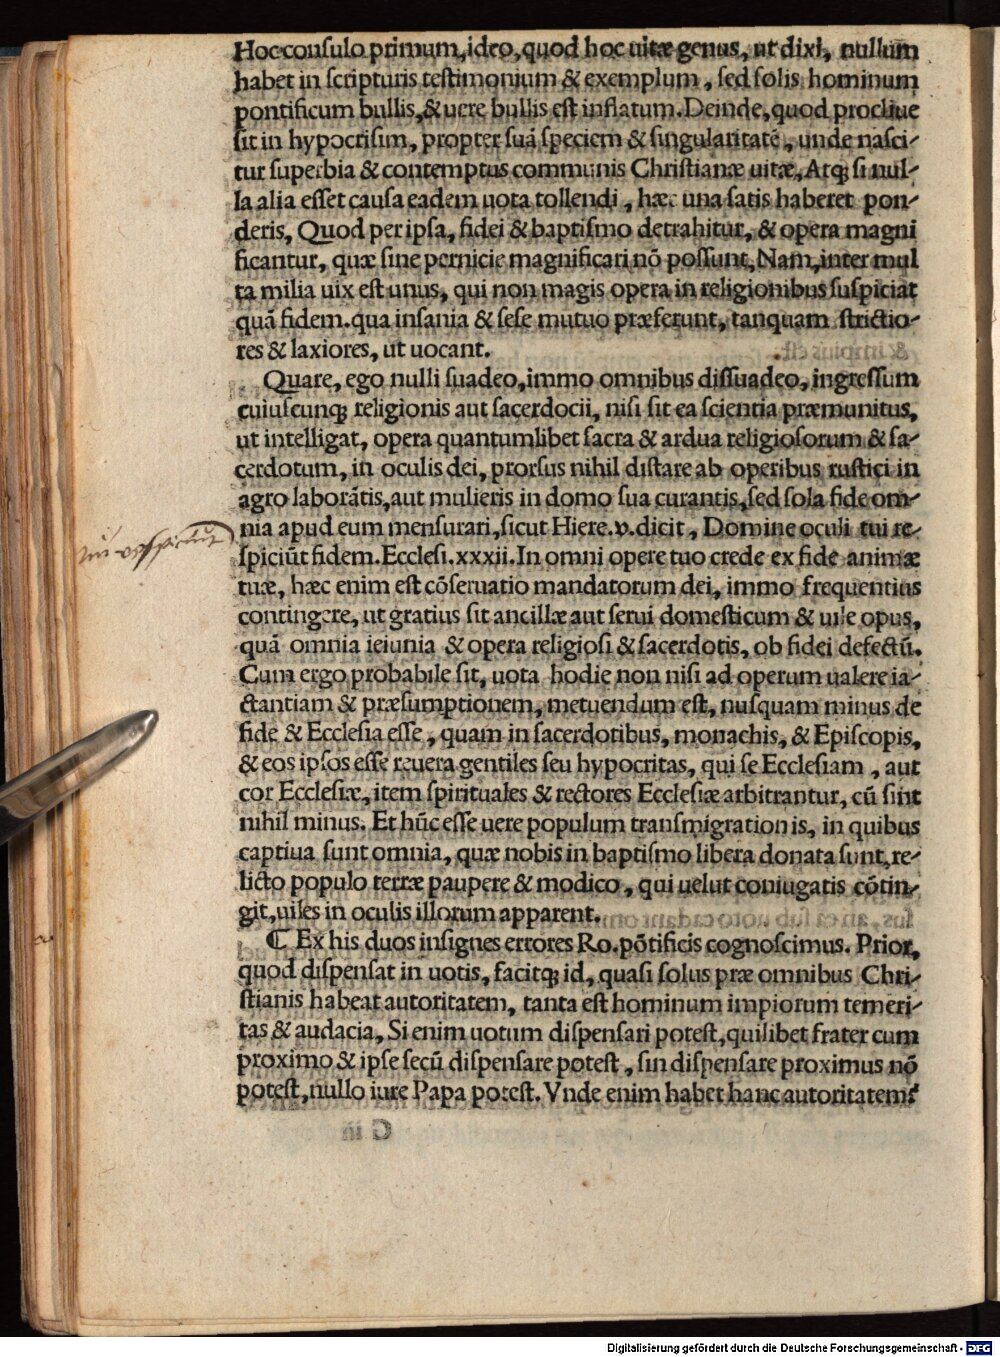 Hoc consulo primum, ideo, quod hoc uitæ genus, ut dixi, nullum
habet in scripturis testimonium & exemplum, sed solis hominum
pontificum bullis, & uere bullis est inflatum. Deinde, quod procliue
sit in hypocrisim, propter suã speciem & singularitatẽ, unde nasci-
tur superbia & contemptus communis Christianæ uitæ, Atq; si nul-
la alia esset causa eadem uota tollendi, hæc una satis haberet pon-
deris, Quod per ipsa, fidei & baptismo detrahitur, & opera magni
ficantur, quæ sine pernicie magnificari nõ possunt, Nam, inter mul
ta milia uix est unus, qui non magis opera in religionibus suspiciat
quã fidem. qua insania & sese mutuo præferunt, tanquam strictio-
res & laxiores, ut uocant.
Quare, ego nulli suadeo, immo omnibus dissuadeo, ingressum
cuiuscunq; religionis aut sacerdocii, nisi sit ea scientia præmunitus,
ut intelligat, opera quantumlibet sacra & ardua religiosorum & sa-
cerdotum, in oculis dei, prorsus nihil distare ab operibus rustici in
agro laborãtis, aut mulieris in domo sua curantis, sed sola fide om-
nia apud eum mensurari, sicut Hiere.v.dicit, Domine oculi tui re-
spiciũt fidem. Ecclesi.xxxii. In omni opere tuo crede ex fide animæ
tuæ, hæc enim est cõseruatio mandatorum dei, immo frequentius
contingere, ut gratius sit ancillæ aut serui domesticum & uile opus,
quã omnia ieiunia & opera religiosi & sacerdotis, ob fidei defectũ.
Cum ergo probabile sit, uota hodie non nisi ad operum ualere ia-
ctantiam & præsumptionem, metuendum est, nusquam minus de
fide & Ecclesia esse, quam in sacerdotibus, monachis, & Episcopis,
& eos ipsos esse reuera gentiles seu hypocritas, qui se Ecclesiam, aut
cor Ecclesiæ, item spirituales & rectores Ecclesiæ arbitrantur, cũ sint
nihil minus. Et hũc esse uere populum transmigrationis, in quibus
captiua sunt omnia, quæ nobis in baptismo libera donata sunt, re-
licto populo terræ paupere & modico, qui uelut coniugatis cõtin-
git, uiles in oculis illorum apparent.
☾ Ex his duos insignes errores Ro. põtificis cognoscimus. Prior,
quod dispensat in uotis, facitq; id, quasi solus præ omnibus Chri-
stianis habeat autoritatem, tanta est hominum impiorum temeri-
tas & audacia, Si enim uotum dispensari potest, quilibet frater cum
proximo & ipse secũ dispensare potest, sin dispensare proximus nõ
potest, nullo iure Papa potest. Vnde enim habet hanc autoritatem?
Digitalisierung gefördert durch die Deutsche Forschungsgemeinschaft - DFG